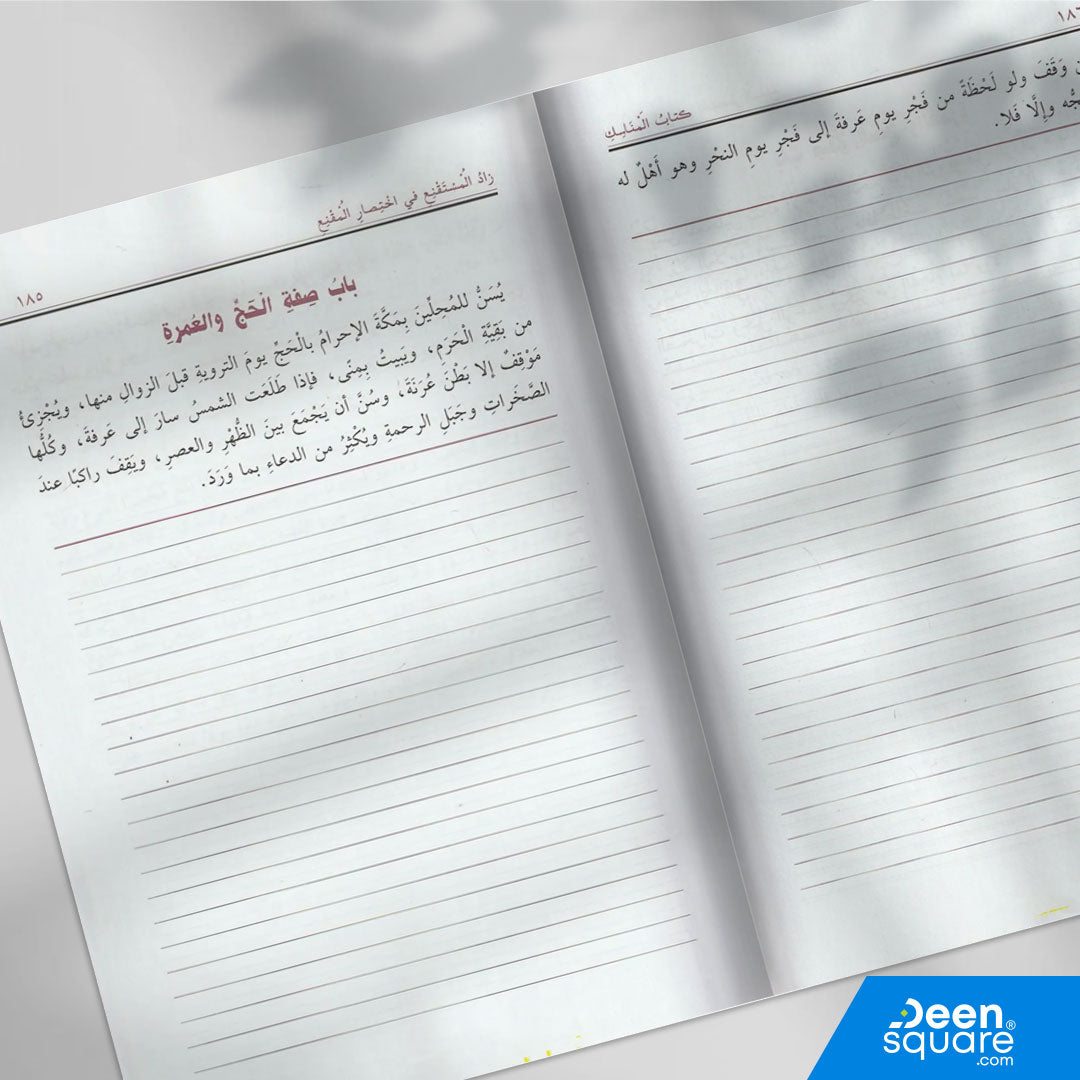 زادُ الْمُسْتَقْنِعِ في اخْتِصارِ الْمُقْنِعِ
١٨٥
بابُ صِفةِ الْحَجِّ والعُمرةِ
يُسَنُّ للمُحِلِّينَ بِمَكَّةَ الإحرامُ بالْحَجِّ يومَ الترويةِ قبلَ الزوالِ منها، ويُجْزِئُ
من بَقِيَّةِ الْحَرَمِ، ويَبيتُ بِمِنًى، فإذا طَلَعَت الشمسُ سارَ إلى عَرفةَ، وكُلُّها
مَوْقِفٌ إلا بَطْنَ عُرَنَةَ، وسُنَّ أن يَجْمَعَ بينَ الظُّهْرِ والعصرِ، ويَقِفَ راكبًا عندَ
الصَّخَراتِ وجَبَلِ الرحمةِ ويُكْثِرُ من الدعاءِ بما وَرَدَ.
١٨٦
كتابُ الْمَنَاسِكِ
وَقَفَ ولو لَحْظَةً من فَجْرِ يومِ عَرفةَ إلى فَجْرِ يومِ النحْرِ وهو أَهْلٌ له
وإلَّا فَلا.
Deen®
square
.com